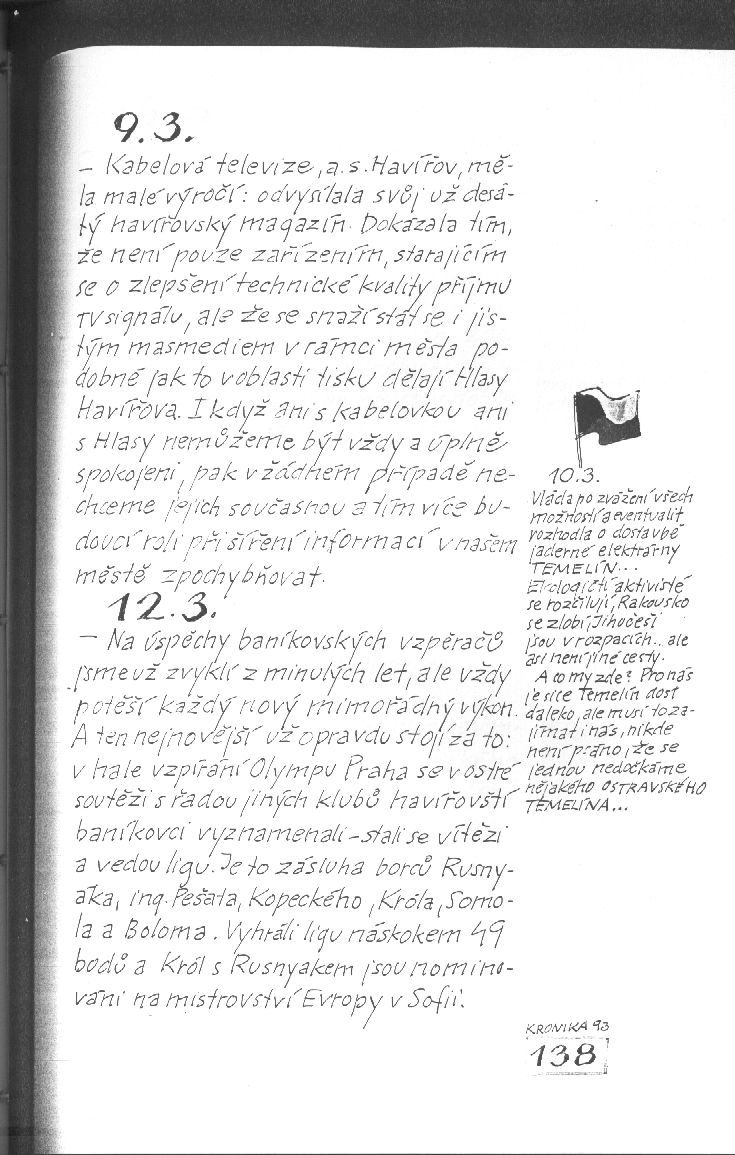 9.3.
– Kabelová televize, a.s. Havířov, mě-
la malé výročí: odvysílala svůj už desá-
tý havířovský magazín. Dokázala tím,
že není pouze zařízením, starajícím
se o zlepšení technické kvality příjmu
TV signálu, ale že se snaží stát se i jis-
tým masmediem v rámci města po-
dobně jak to v oblasti tisku dělají Hlasy
Havířova. I když ani s kabelovkou ani
s Hlasy nemůžeme být vždy a úplně
spokojeni, pak v žádném případě ne-
chceme jejich současnou a tím více bu-
doucí roli při šíření informací v našem
městě zpochybňovat.
12.3.
– Na úspěchy baníkovských vzpěračů
jsme už zvyklí z minulých let, ale vždy
potěší každý nový mimořádný výkon.
A ten nejnovější už opravdu stojí za to:
v hale vzpírání Olympu Praha se v ostré
soutěži s řadou jiných klubů havířovští
baníkovci vyznamenali – stali se vítězi
a vedou ligu. Je to zásluha borců Rusny-
áka, ing. Pešata, Kopeckého, Króla, Somo-
la a Boloma. Vyhráli ligu náskokem 49
bodů a Król s Rusnyakem jsou nomino-
váni na mistrovství Evropy v Sofii.
10.3.
Vláda po zvážení všech
možností a eventualit
rozhodla o dostavbě
jaderné elektrárny
TEMELÍN...
Ekologičtí aktivisté
se rozčilují, Rakousko
se zlobí, Jihočeši
jsou v rozpacích... ale
asi není jiné cesty.
A co my zde? Pro nás
je sice Temelín dost
daleko, ale musí to za-
jímat i nás, nikde
není psáno, že se
jednou nedočkáme
nějakého OSTRAVSKÉHO
TEMELÍNA...
KRONIKA 93
138